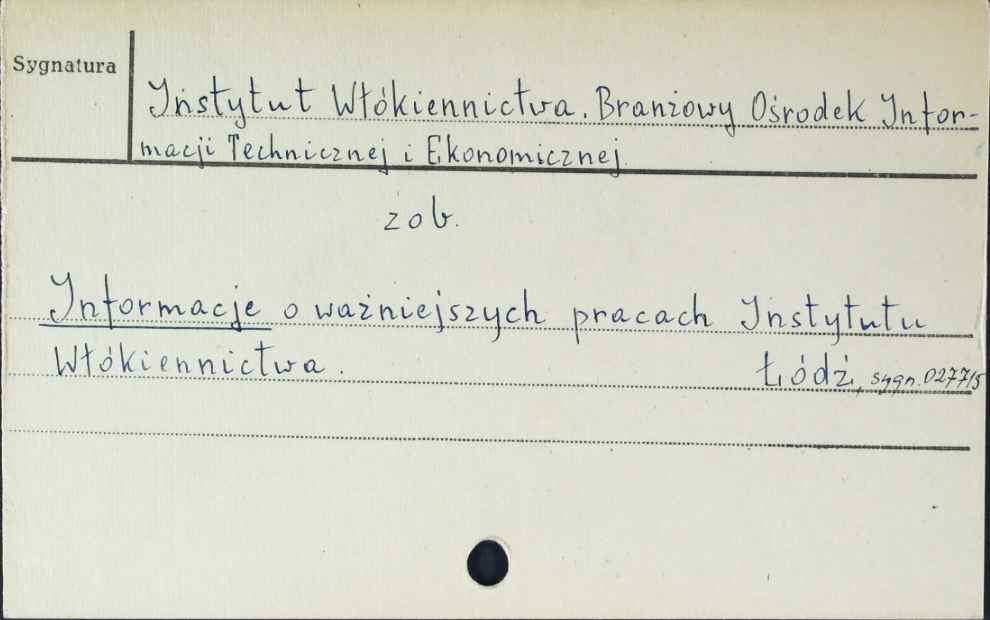 Sygnatura
Instytut Włókiennictwa. Branżowy Ośrodek Infor-
macji Technicznej i Ekonomicznej.
zob.
Informacje o ważniejszych pracach Instytutu
Włókiennictwa. Łódź, sygn. 02771/5